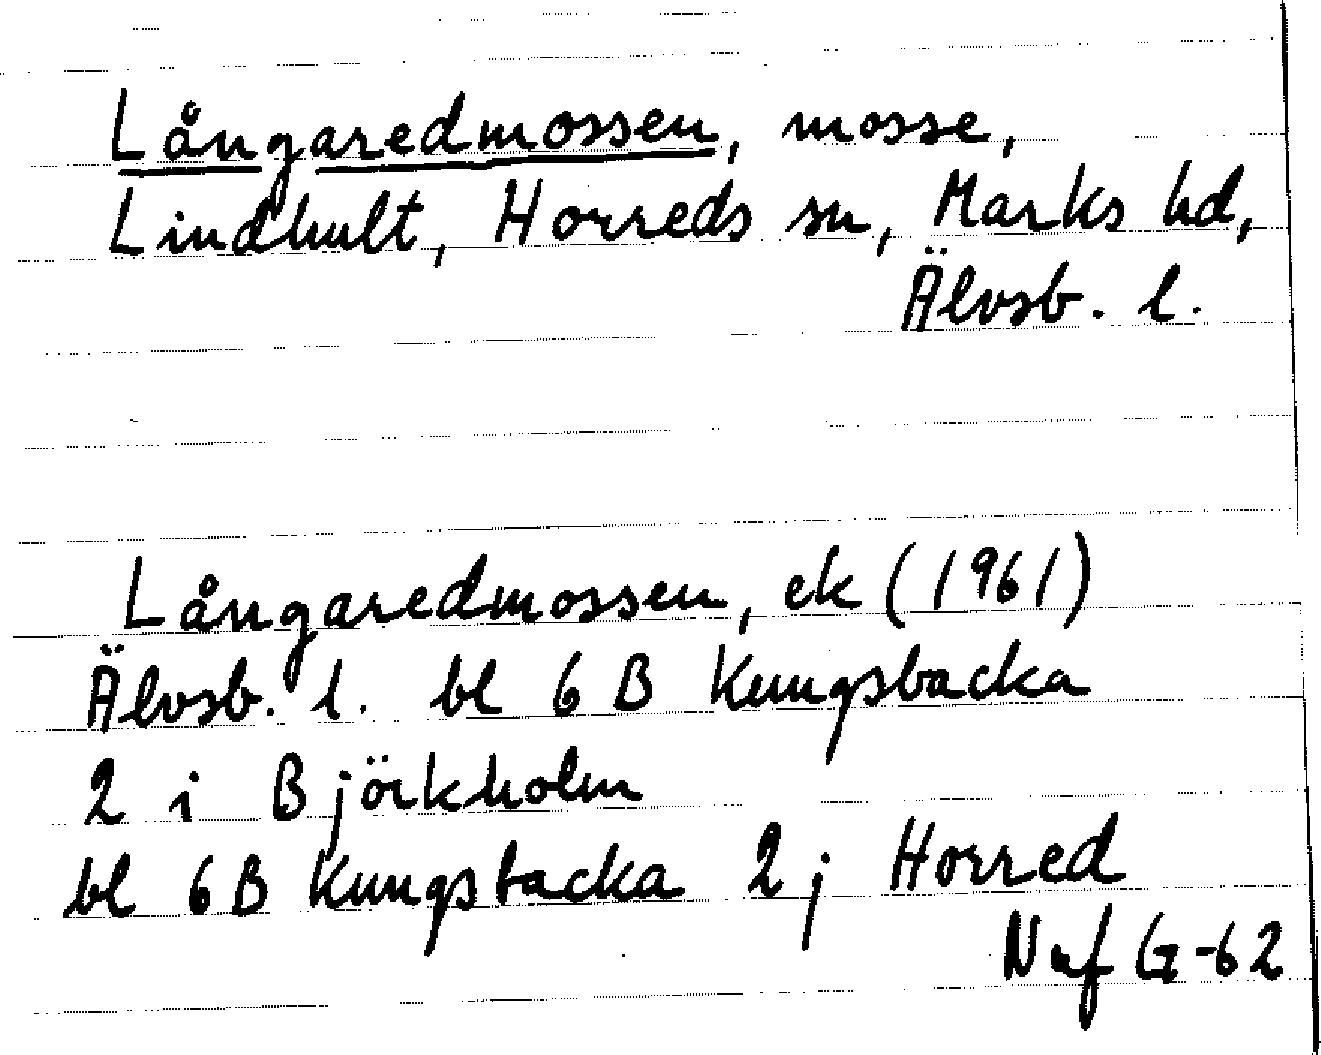 Långaredmossen, mosse,
Lindhult, Horreds sn, Marks hd,
Älvsb. l.
Långaredmossen, ek (1961)
Älvsb. l. bl 6 B Kungsbacka
2 i Björkholm
bl 6 B Kungsbacka 2 j Horred
Naf G-62